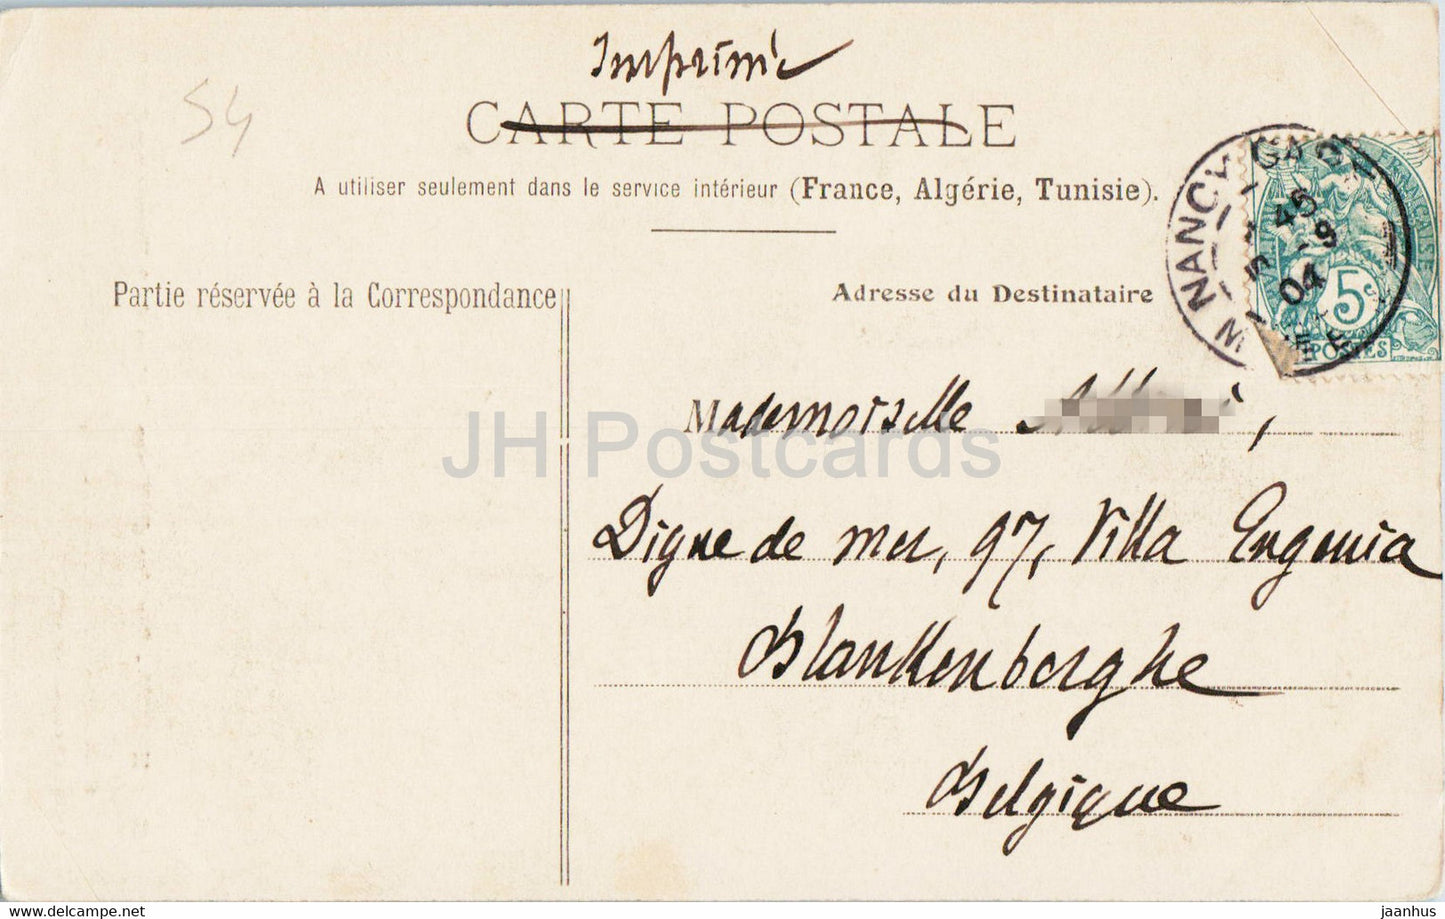 Imprimé
CARTE POSTALE
54
A utiliser seulement dans le service intérieur (France, Algérie, Tunisie).
NANCY GARE
45
5 -9
04
FRANÇAISE
5c
POSTES
Partie réservée à la Correspondance
Adresse du Destinataire
Mademoiselle
JH Postcards
Digue de mer, 97, Villa Eugenia
Blankenberghe
Belgique
www.delcampe.net
jaanhus